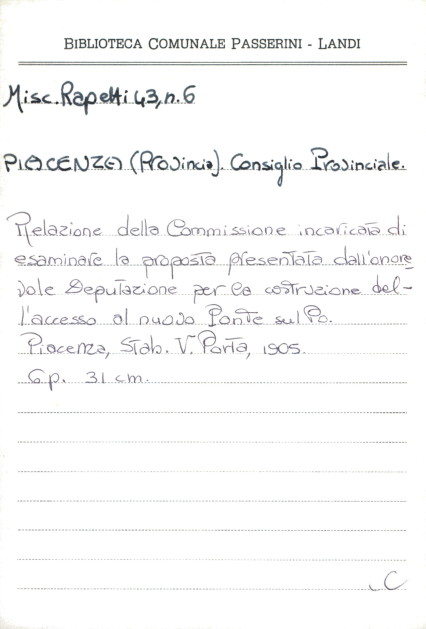 BIBLIOTECA COMUNALE PASSERINI - LANDI
Misc. Rapetti 43, n. 6
PIACENZA (Provincia). Consiglio Provinciale.
Relazione della Commissione incaricata di
esaminare la proposta presentata dall'onore=
vole Deputazione per la costruzione del-
l'accesso al nuovo Ponte sul Po.
Piacenza, Stab. V. Porta, 1905.
6 p. 31 cm.
C